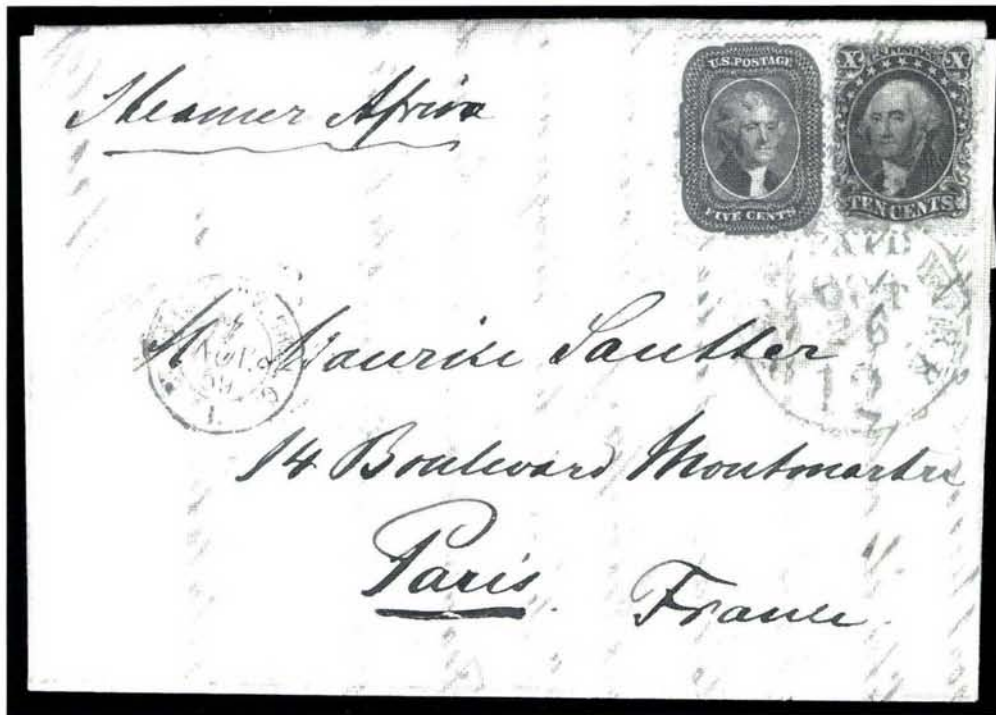 Steamer Africa
U.S. POSTAGE
FIVE CENTS
X U.S. POSTAGE X
TEN CENTS
M. Maurice Sautter
14 Boulevard Montmartre
Paris France